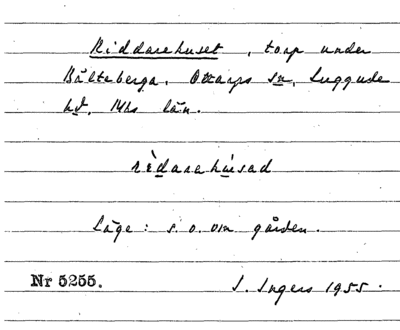 Riddarehuset, torp under
Bälteberga, Ottarps sn, Luggude
hd. Mhs län.
rèdarehúsad
Läge: s.o. om gården.
Nr 5255.
I. Ingers 1955.